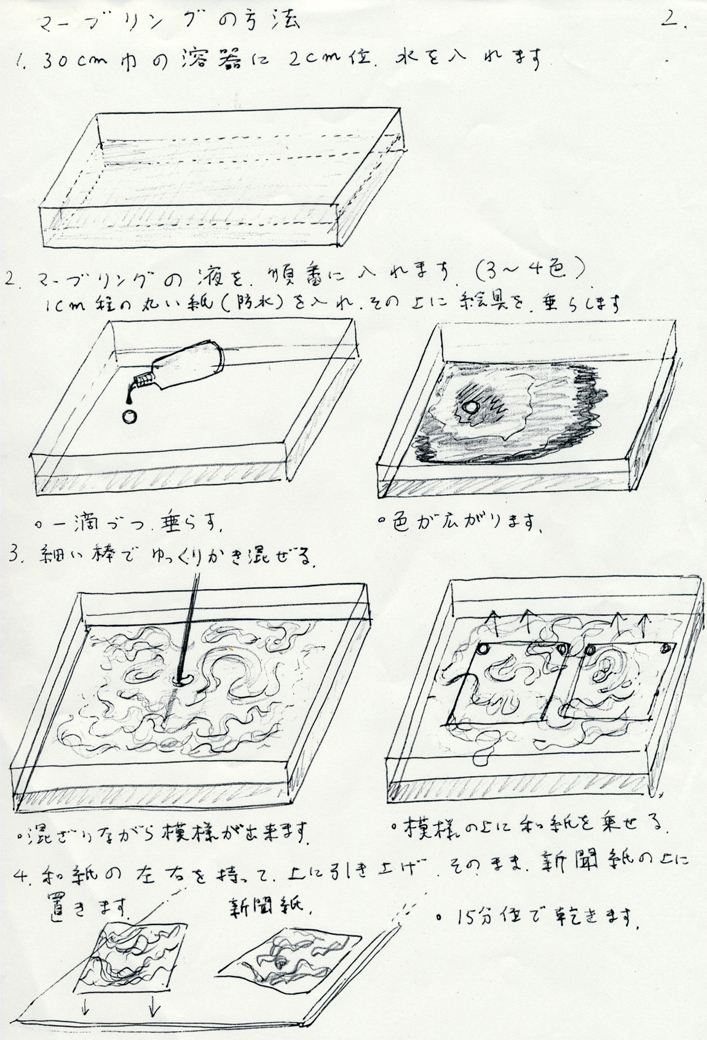 マーブリングの方法
2.
1. 30cm巾の容器に 2cm位、水を入れます
2. マーブリングの液を、順番に入れます。(3〜4色)
1cm程の丸い紙(防水)を入れ、その上に絵具を、垂らします
。一滴づつ、垂らす。
。色が広がります。
3. 細い棒でゆっくりかき混ぜる。
。混ざりながら模様が出来ます。
。模様の上に和紙を乗せる。
4. 和紙の左右を持って、上に引き上げ、そのまま、新聞紙の上に
置きます。
新聞紙。
。15分位で乾きます。